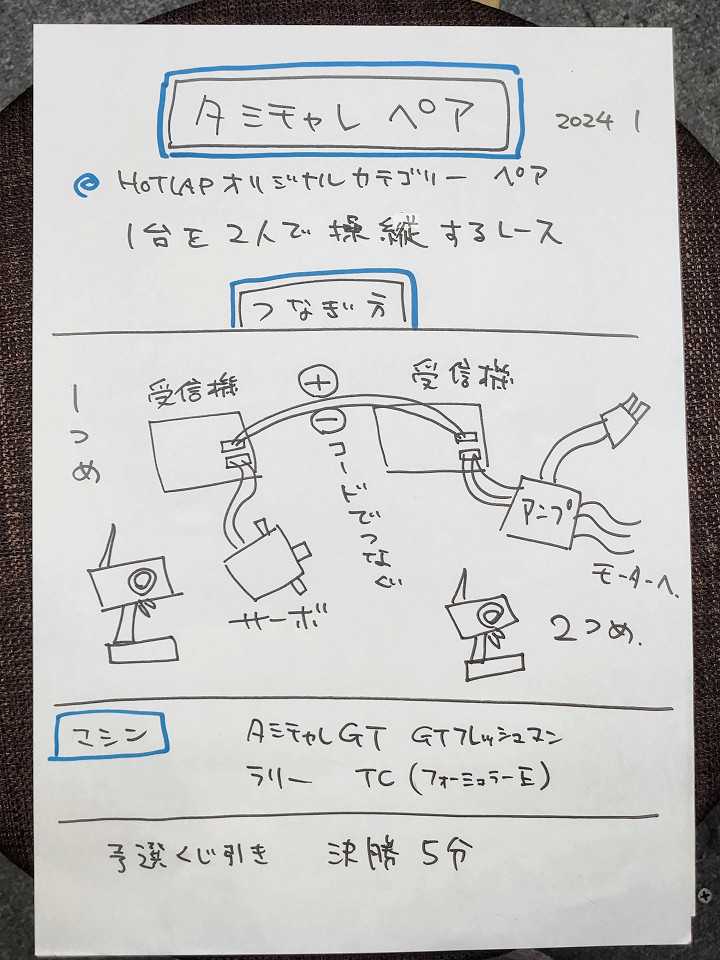 タミチャレ ペア
2024 1
@ HOTLAPオリジナルカテゴリー ペア
1台を2人で操縦するレース
つなぎ方
1つめ
受信機
+
-
受信機
コードでつなぐ
アンプ
モーターへ
サーボ
2つめ.
マシン
タミチャレGT GTフレッシュマン
ラリー TC (フォーミュラーE)
予選くじ引き 決勝 5分